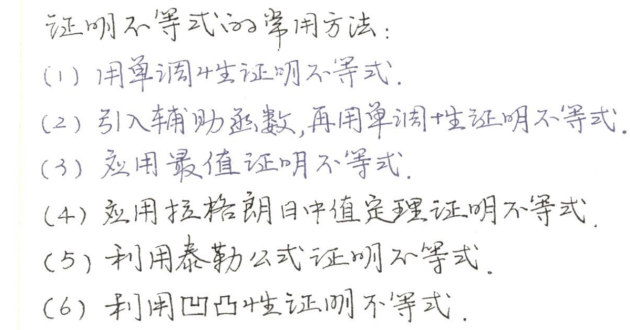 证明不等式的常用方法:
(1) 用单调性证明不等式.
(2) 引入辅助函数,再用单调性证明不等式.
(3) 应用最值证明不等式.
(4) 应用拉格朗日中值定理证明不等式.
(5) 利用泰勒公式证明不等式.
(6) 利用凹凸性证明不等式.